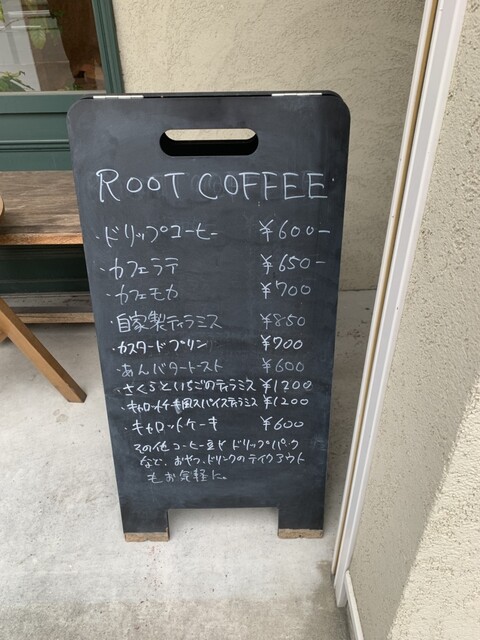 ROOT COFFEE
・ドリップコーヒー ¥600-
・カフェラテ ¥650-
・カフェモカ ¥700
・自家製ティラミス ¥850
・カスタードプリン ¥700
・あんバタートースト ¥600
・さくらといちごのティラミス ¥1200
・キャロットケーキ風スパイスティラミス ¥1200
・キャロットケーキ ¥600
その他コーヒー豆やドリップパック
など、おやつ、ドリンクのテイクアウト
もお気軽に。